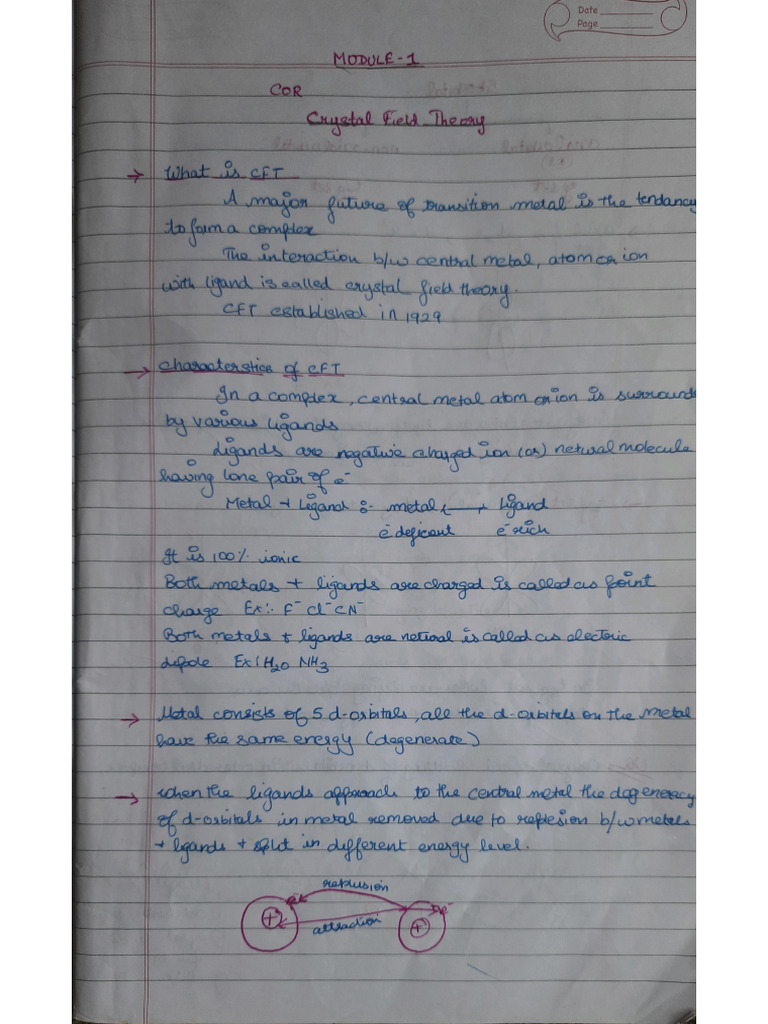 Date
Page
MODULE-1
COR
Crystal Field Theory
→ What is CFT
A major future of transition metal is the tendancy
to form a complex
The interaction b/w central metal, atom or ion
with ligand is called crystal field theory.
CFT established in 1929
→ Characterstics of CFT
In a complex, central metal atom or ion is surround
by various ligands
Ligands are negative charged ion (or) netural molecule
having lone pair of e⁻
Metal + Ligand :- metal ←→ Ligand
e⁻deficant e⁻rich
It is 100% ionic
Both metals + ligands are charged is called as point
charge Ex:- F⁻ Cl⁻ CN⁻
Both metals + ligands are netural is called as electric
dipole Ex: H₂O NH₃
→ Metal consists of 5 d-orbitals, all the d-orbitals on the metal
have the same energy (degenerate)
→ when the ligands approach to the central metal the degenercy
of d-orbitals in metal removed due to replesion b/w metals
+ ligands + split in different energy level.
replusion
e⁻ e⁻
+ attraction +